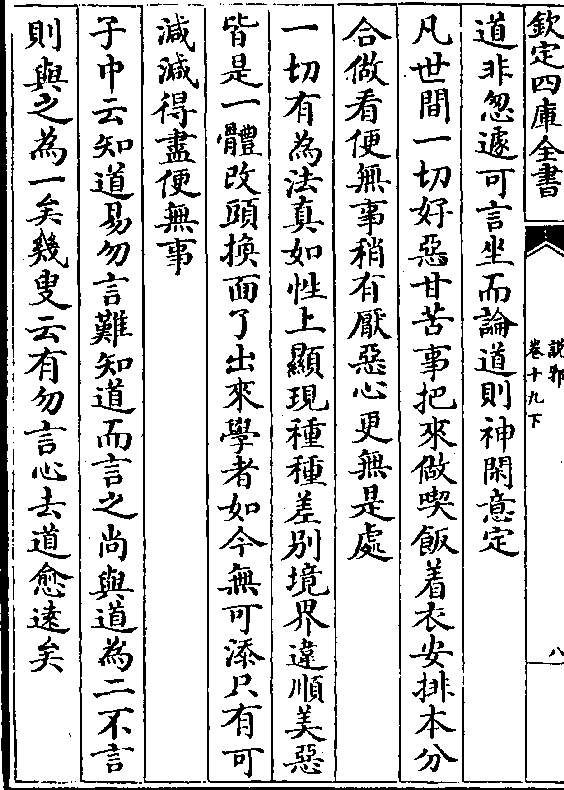 欽定四庫全書
說郛
卷十九下
八
道非怱遽可言坐而論道則神閑意定
凡世間一切好惡甘苦事把來做喫飯着衣安排本分
合做看便無事稍有厭惡心更無是處
一切有為法真如性上顯現種種差别境界違順美惡
皆是一體改頭換面了出來學者如今無可添只有可
減減得盡便無事
子中云知道易勿言難知道而言之尚與道為二不言
則與之為一矣幾叟云有勿言心去道愈逺矣